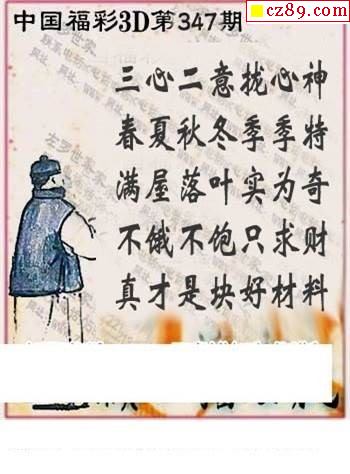 cz89.com
中国福彩3D第347期
三心二意拢心神
春夏秋冬季季特
满屋落叶实为奇
不饿不饱只求财
真才是块好材料